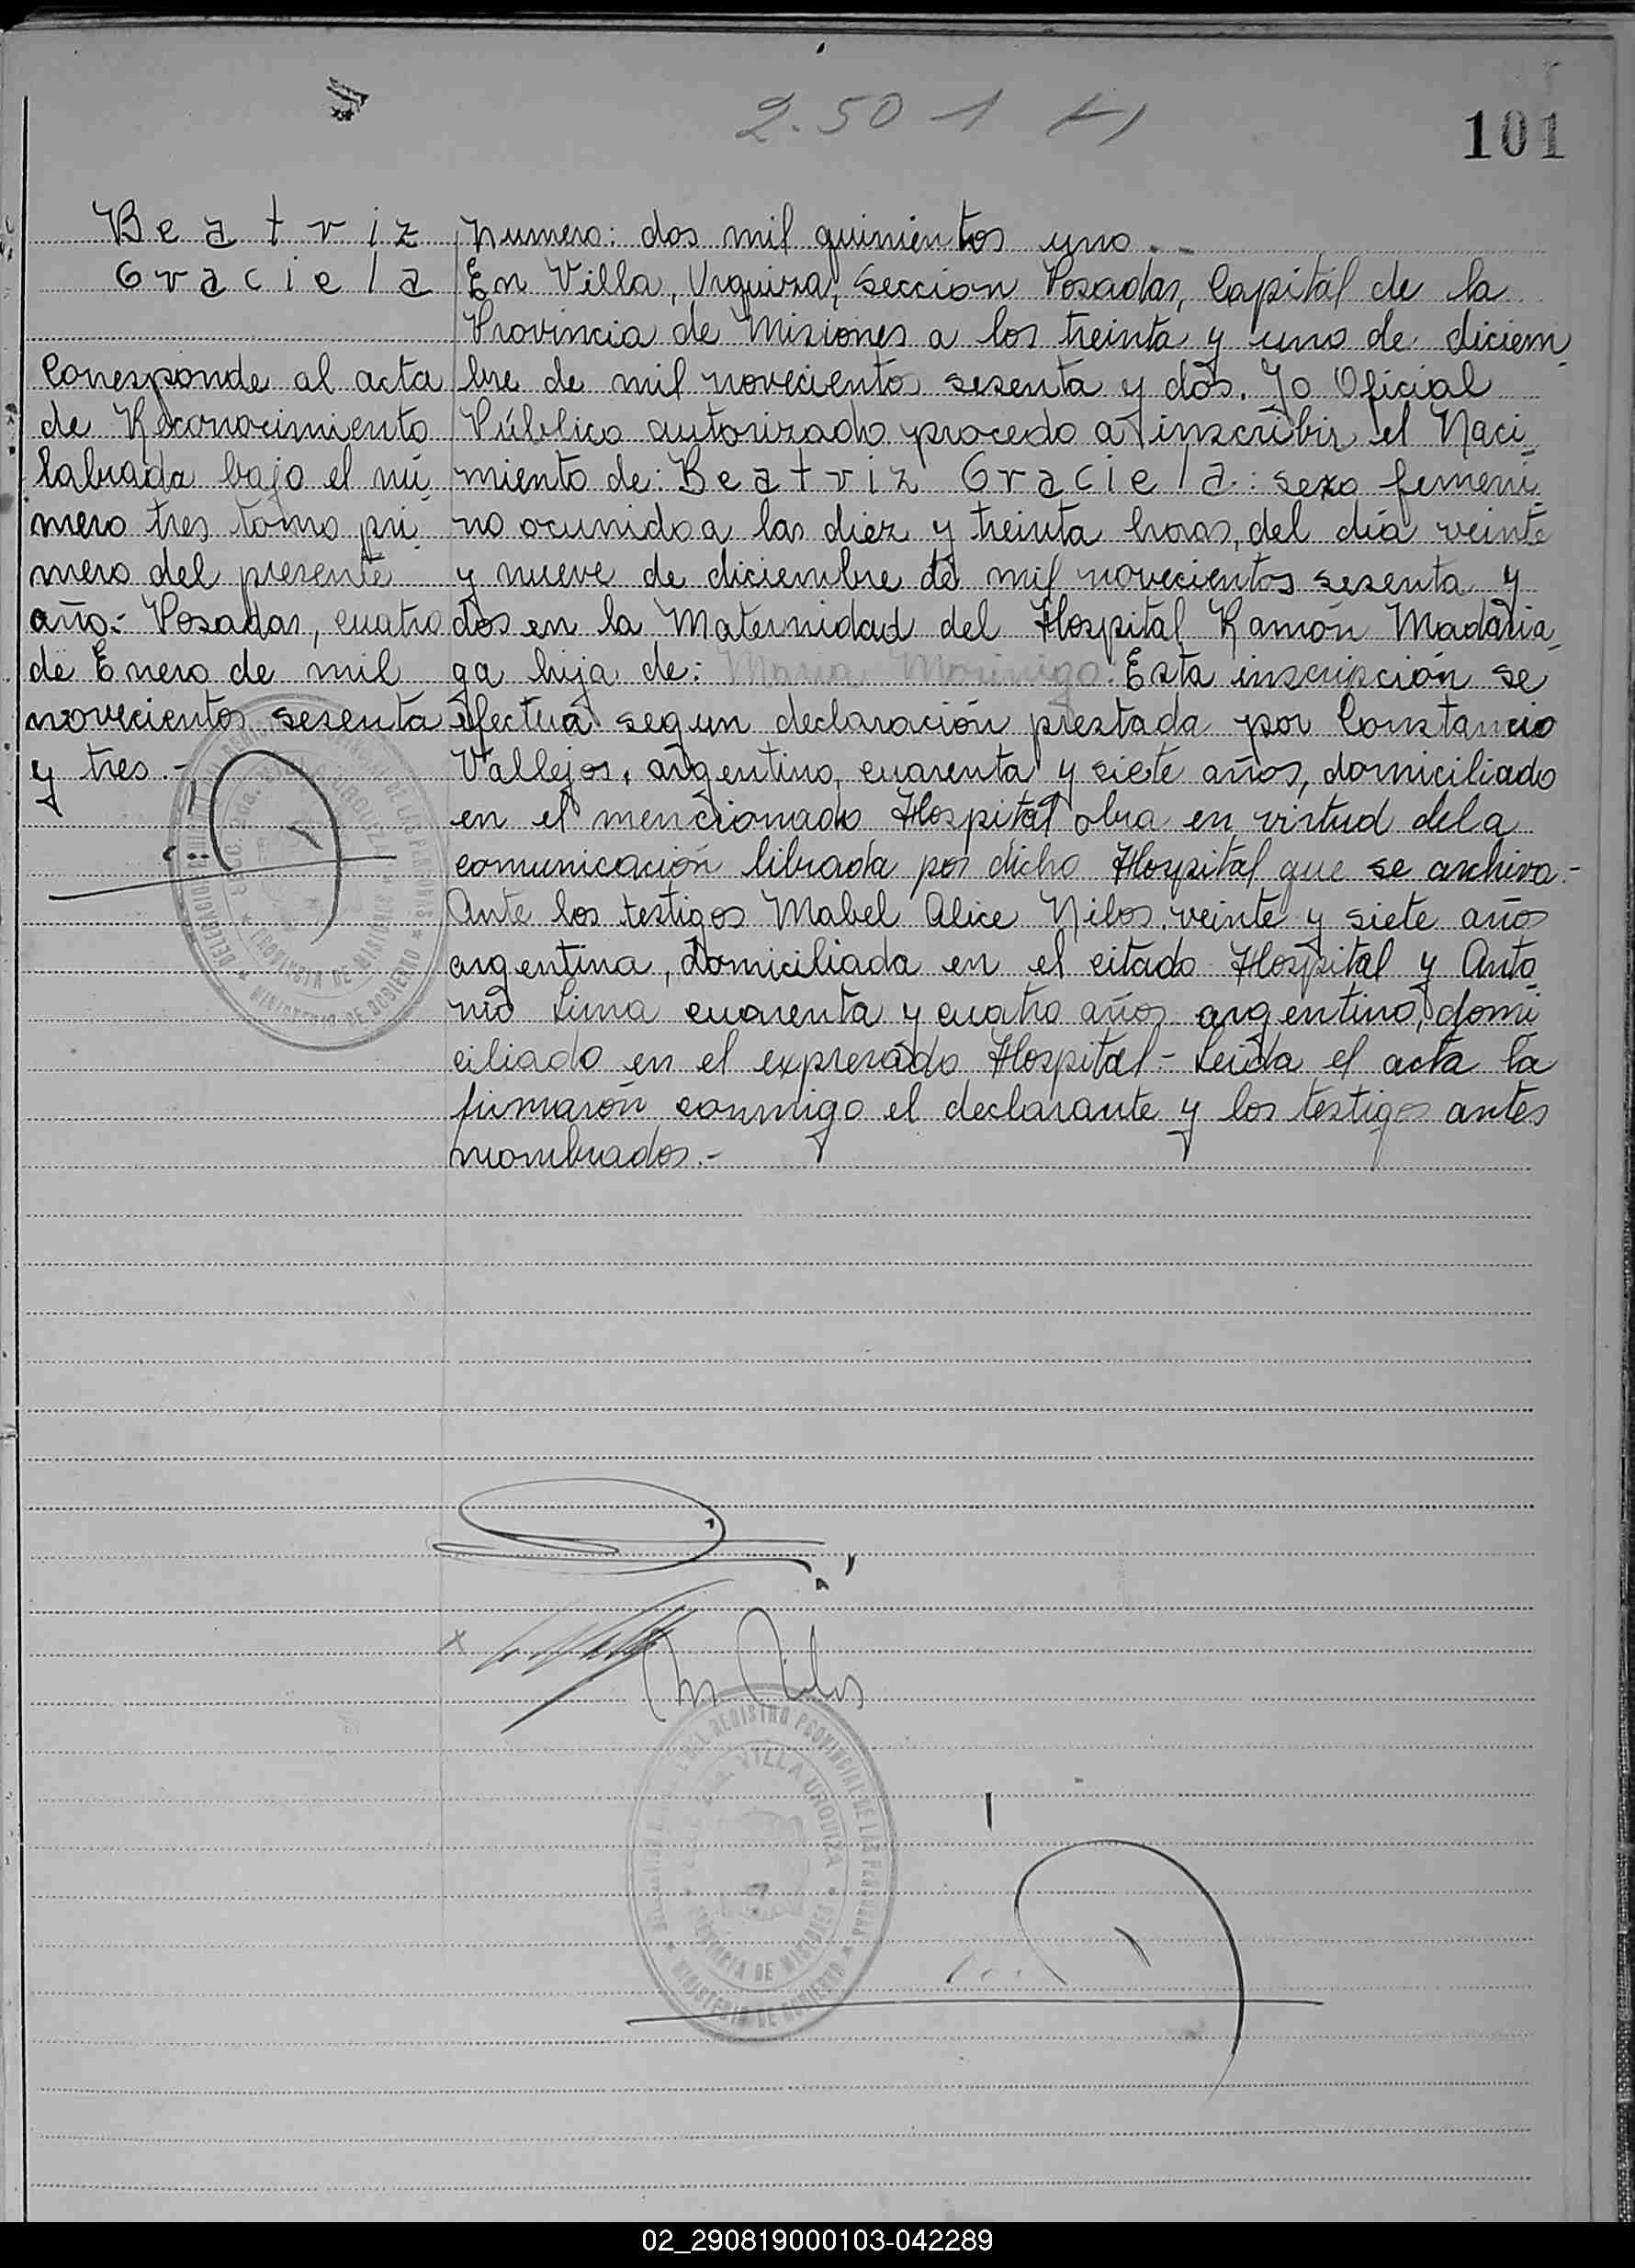 2.501
101
Beatriz
Graciela
Corresponde al acta
de Reconocimiento
labrada bajo el nú
mero tres tomo pri
mero del presente
año.- Posadas, cuatro
de Enero de mil
novecientos sesenta
y tres.-
Numero: dos mil quinientos uno.-
En Villa, Urquiza, Sección Posadas, Capital de la
Provincia de Misiones a los treinta y uno de diciem
bre de mil novecientos sesenta y dos. Yo Oficial
Público autorizado procedo a inscribir el Naci
miento de: Beatriz Graciela: sexo femeni
no ocurrido a las diez y treinta horas, del día veinte
y nueve de diciembre de mil novecientos sesenta y
dos en la Maternidad del Hospital Ramón Madaria
ga hija de: Maria Morinigo. Esta inscripción se
efectua segun declaración prestada por Constancio
Vallejos, argentino, cuarenta y siete años, domiciliado
en el mencionado Hospital obra en virtud dela
comunicación librada por dicho Hospital que se archiva.-
Ante los testigos Mabel Alice Nilos veinte y siete años
argentina, domiciliada en el citado Hospital y Anto
nio Lima cuarenta y cuatro años argentino, domi
ciliado en el expresado Hospital.- Leida el acta la
firmarón conmigo el declarante y los testigos antes
nombrados.-
REGISTRO PROVINCIAL DE LAS PERSONAS
VILLA URQUIZA
PROVINCIA DE MISIONES
MINISTERIO DE GOBIERNO
02_290819000103-042289